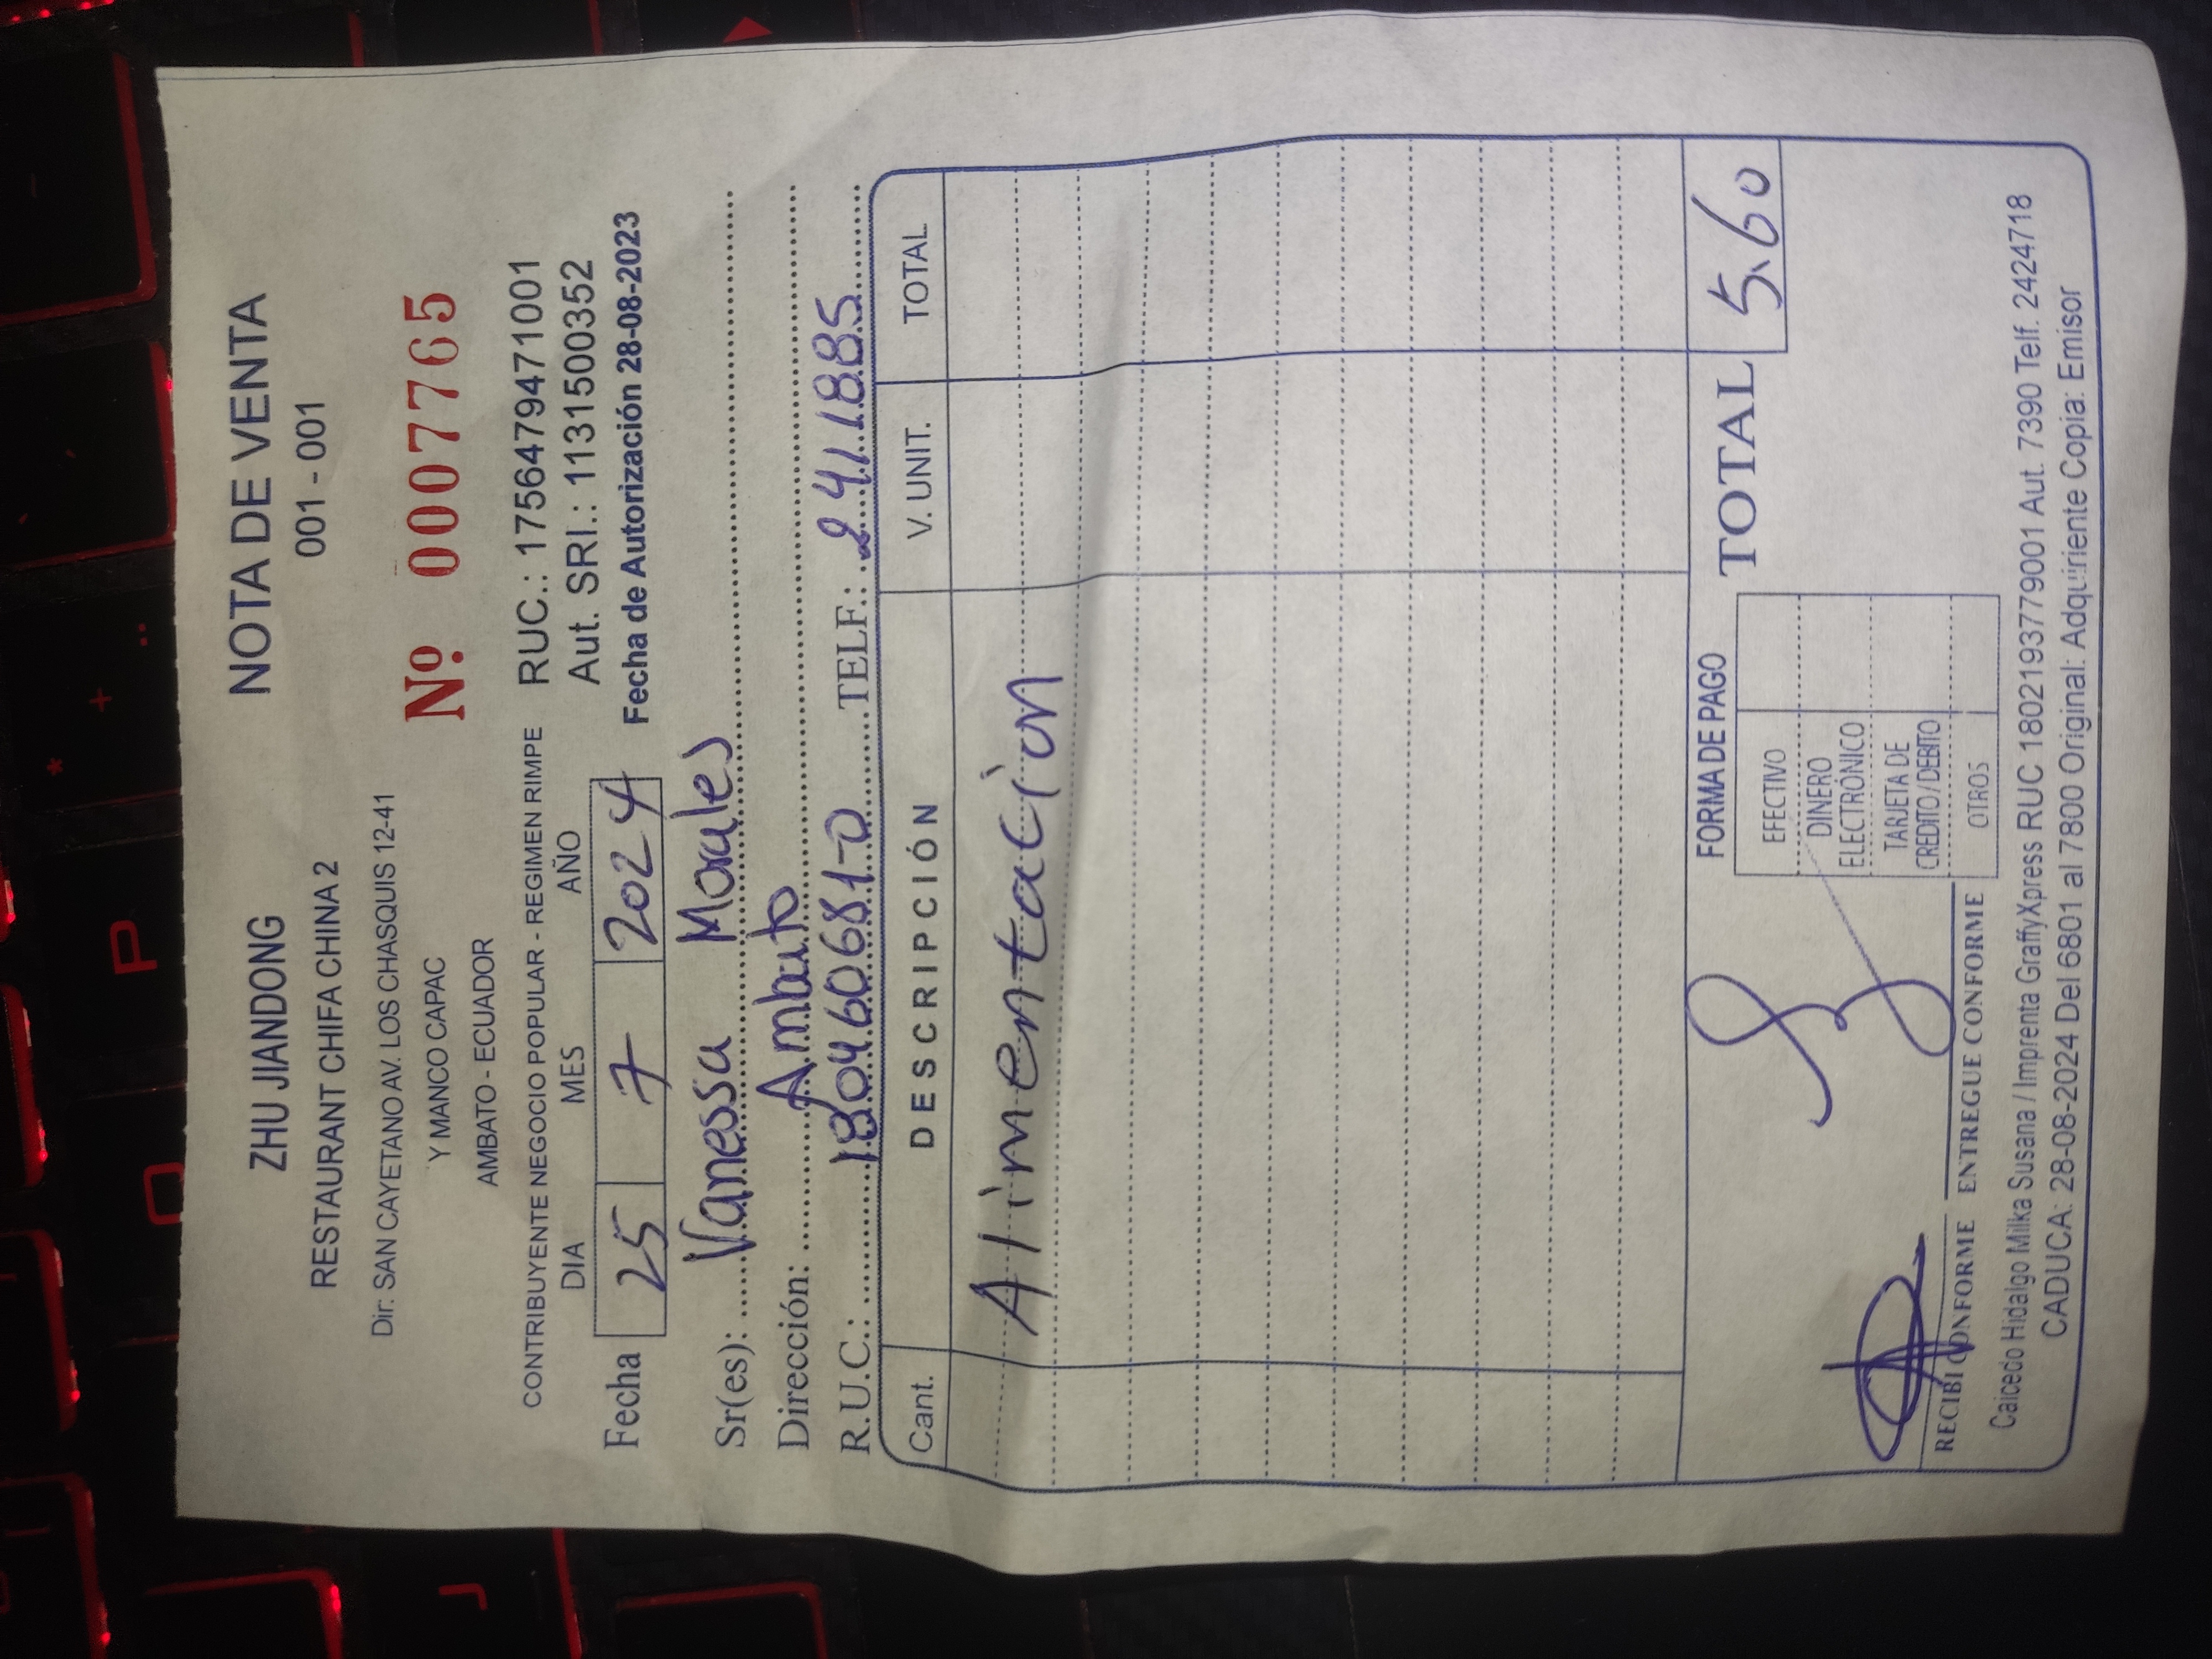 O P * + ¨
J
ZHU JIANDONG
RESTAURANT CHIFA CHINA 2
Dir: SAN CAYETANO AV. LOS CHASQUIS 12-41
Y MANCO CAPAC
AMBATO - ECUADOR
CONTRIBUYENTE NEGOCIO POPULAR - REGIMEN RIMPE
NOTA DE VENTA
001 - 001
Nº 0007765
RUC.: 1756479471001
Aut. SRI.: 1131500352
Fecha de Autorización 28-08-2023
DIA MES AÑO
Fecha 25 7 2024
Sr(es): Vanessa Morales
Dirección: Ambato
R.U.C.: 180460681-0 TELF.: 2411885
Cant. DESCRIPCIÓN V. UNIT. TOTAL
Alimentacion
TOTAL 5.60
FORMA DE PAGO
EFECTIVO
DINERO
ELECTRÓNICO
TARJETA DE
CREDITO / DEBITO
OTROS
RECIBI CONFORME ENTREGUE CONFORME
Caicedo Hidalgo Milka Susana / Imprenta GraffyXpress RUC 1802193779001 Aut. 7390 Telf. 2424718
CADUCA: 28-08-2024 Del 6801 al 7800 Original: Adquiriente Copia: Emisor